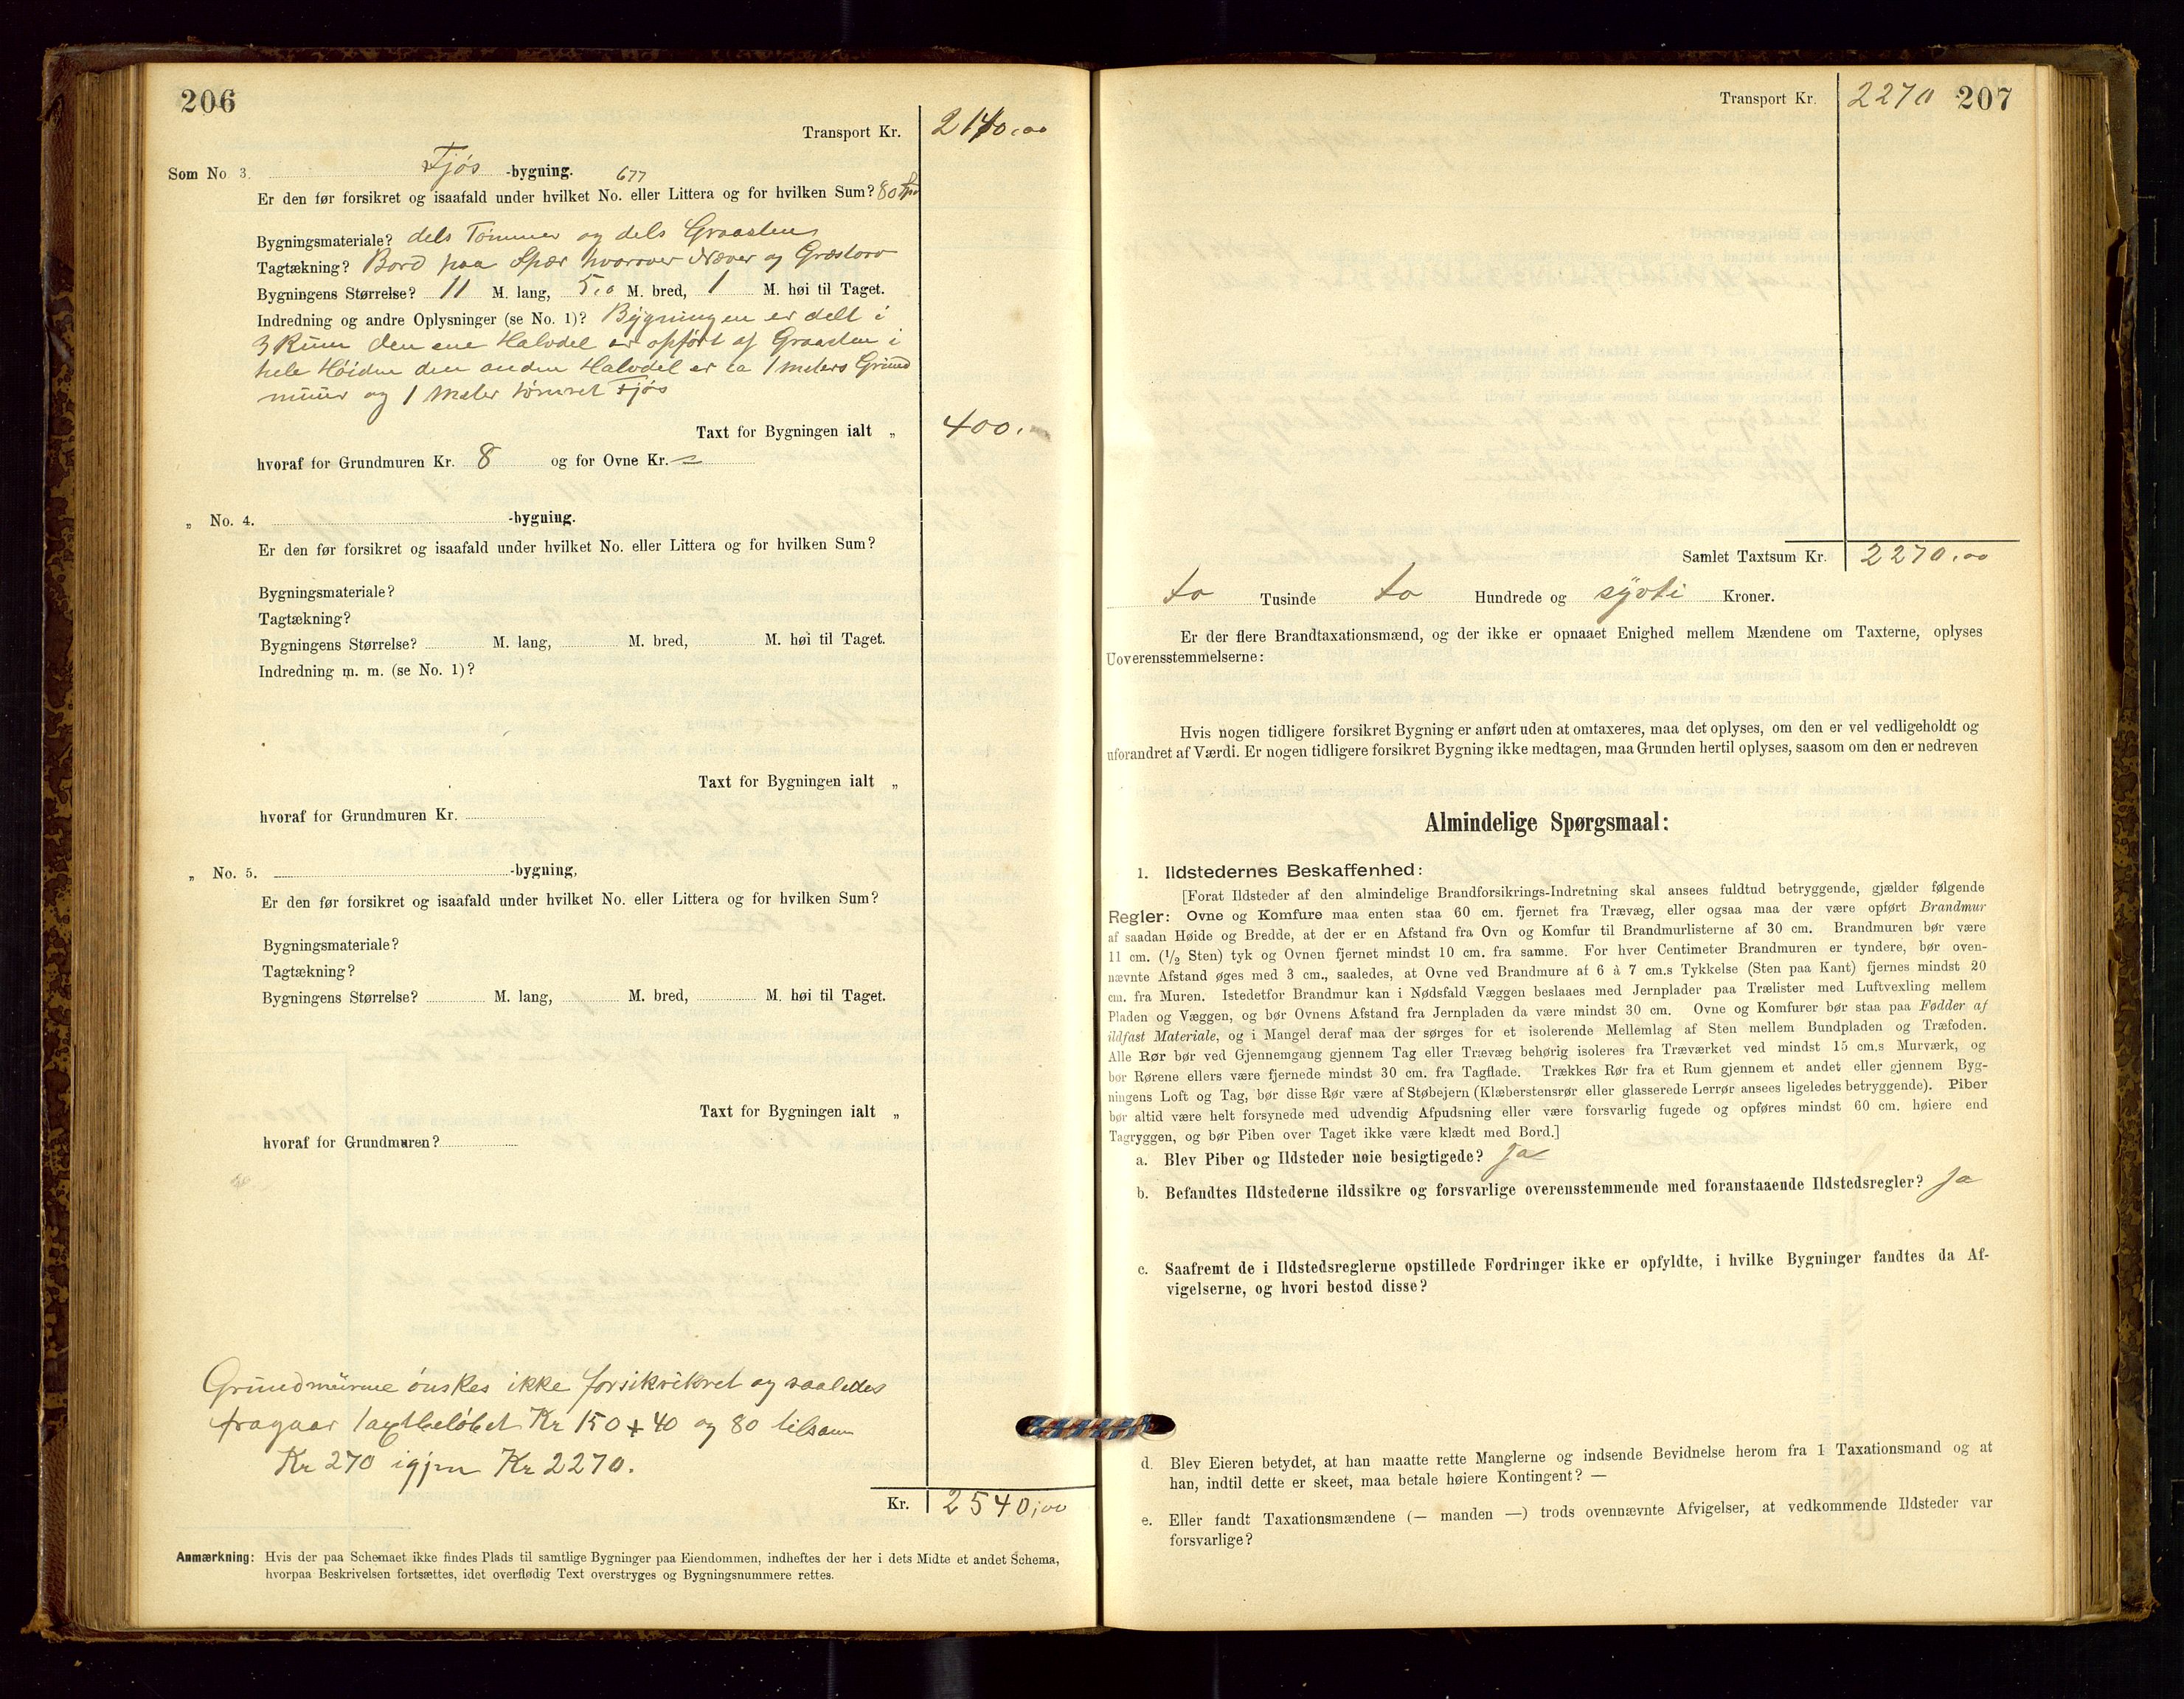 206
Transport Kr. 2140,00
Som No 3. Fjøs -bygning. 677
Er den før forsikret og isaafald under hvilket No. eller Littera og for hvilken Sum? 80
Bygningsmateriale? dels Tømmer og dels Graasten
Tagtækning? Bord paa Spær hvorover Næver og Græstorv
Bygningens Størrelse? 11 M. lang, 5,0 M. bred, 1 M. høi til Taget.
Indredning og andre Oplysninger (se No. 1)? Bygningen er delt i
3 Rum den ene Halvdel er opført af Graasten i
hele Høiden den anden Halvdel er ca 1 meters Grund
muur og 1 meter tømret Fjøs
Taxt for Bygningen ialt „ 400.
hvoraf for Grundmuren Kr. 8 og for Ovne Kr. –
„ No. 4. -bygning.
Er den før forsikret og isaafald under hvilket No. eller Littera og for hvilken Sum?
Bygningsmateriale?
Tagtækning?
Bygningens Størrelse? M. lang, M. bred, M. høi til Taget.
Indredning m. m. (se No. 1)?
Taxt for Bygningen ialt „
hvoraf for Grundmuren Kr.
„ No. 5. -bygning,
Er den før forsikret og isaafald under hvilket No. eller Littera og for hvilken Sum?
Bygningsmateriale?
Tagtækning?
Bygningens Størrelse? M. lang, M. bred, M. høi til Taget.
Taxt for Bygningen ialt „
hvoraf for Grundmuren?
Grundmurene ønskes ikke forsikrikret og saaledes
fragaar Taxtbeløbet Kr 150 + 40 og 80 tilsam
Kr 270 igjen Kr 2270.
Kr. 2540,00
Anmærkning: Hvis der paa Schemaet ikke findes Plads til samtlige Bygninger paa Eiendommen, indheftes der her i dets Midte et andet Schema,
hvorpaa Beskrivelsen fortsættes, idet overflødig Text overstryges og Bygningsnummere rettes.
Transport Kr. 2270 207
Samlet Taxtsum Kr. 2270,00
to Tusinde to Hundrede og sytti Kroner.
Er der flere Brandtaxationsmænd, og der ikke er opnaaet Enighed mellem Mændene om Taxterne, oplyses
Uoverensstemmelserne:
Hvis nogen tidligere forsikret Bygning er anført uden at omtaxeres, maa det oplyses, om den er vel vedligeholdt og
uforandret af Værdi. Er nogen tidligere forsikret Bygning ikke medtagen, maa Grunden hertil oplyses, saasom om den er nedreven
Almindelige Spørgsmaal:
1. Ildstedernes Beskaffenhed:
[Forat Ildsteder af den almindelige Brandforsikrings-Indretning skal ansees fuldtud betryggende, gjælder følgende
Regler: Ovne og Komfure maa enten staa 60 cm. fjernet fra Trævæg, eller ogsaa maa der være opført Brandmur
af saadan Høide og Bredde, at der er en Afstand fra Ovn og Komfur til Brandmurlisterne af 30 cm. Brandmuren bør være
11 cm. (1/2 Sten) tyk og Ovnen fjernet mindst 10 cm. fra samme. For hver Centimeter Brandmuren er tyndere, bør oven-
nævnte Afstand øges med 3 cm., saaledes, at Ovne ved Brandmure af 6 à 7 cm.s Tykkelse (Sten paa Kant) fjernes mindst 20
cm. fra Muren. Istedetfor Brandmur kan i Nødsfald Væggen beslaaes med Jernplader paa Trælister med Luftvexling mellem
Pladen og Væggen, og bør Ovnens Afstand fra Jernpladen da være mindst 30 cm. Ovne og Komfurer bør staa paa Fødder af
ildfast Materiale, og i Mangel deraf maa der sørges for et isolerende Mellemlag af Sten mellem Bundpladen og Træfoden.
Alle Rør bør ved Gjennemgang gjennem Tag eller Trævæg behørig isoleres fra Træværket ved mindst 15 cm.s Murværk, og
bør Rørene ellers være fjernede mindst 30 cm. fra Tagflade. Trækkes Rør fra et Rum gjennem et andet eller gjennem Byg-
ningens Loft og Tag, bør disse Rør være af Støbejern (Klæberstensrør eller glasserede Lerrør ansees ligeledes betryggende). Piber
bør altid være helt forsynede med udvendig Afpudsning eller være forsvarlig fugede og opføres mindst 60 cm. høiere end
Tagryggen, og bør Piben over Taget ikke være klædt med Bord.]
a. Blev Piber og Ildsteder nøie besigtigede? Ja
b. Befandtes Ildstederne ildssikre og forsvarlige overensstemmende med foranstaaende Ildstedsregler? Ja
c. Saafremt de i Ildstedsreglerne opstillede Fordringer ikke er opfyldte, i hvilke Bygninger fandtes da Af-
vigelserne, og hvori bestod disse?
d. Blev Eieren betydet, at han maatte rette Manglerne og indsende Bevidnelse herom fra 1 Taxationsmand og at
han, indtil dette er skeet, maa betale høiere Kontingent? —
e. Eller fandt Taxationsmændene (— manden —) trods ovennævnte Afvigelser, at vedkommende Ildsteder var
forsvarlige?